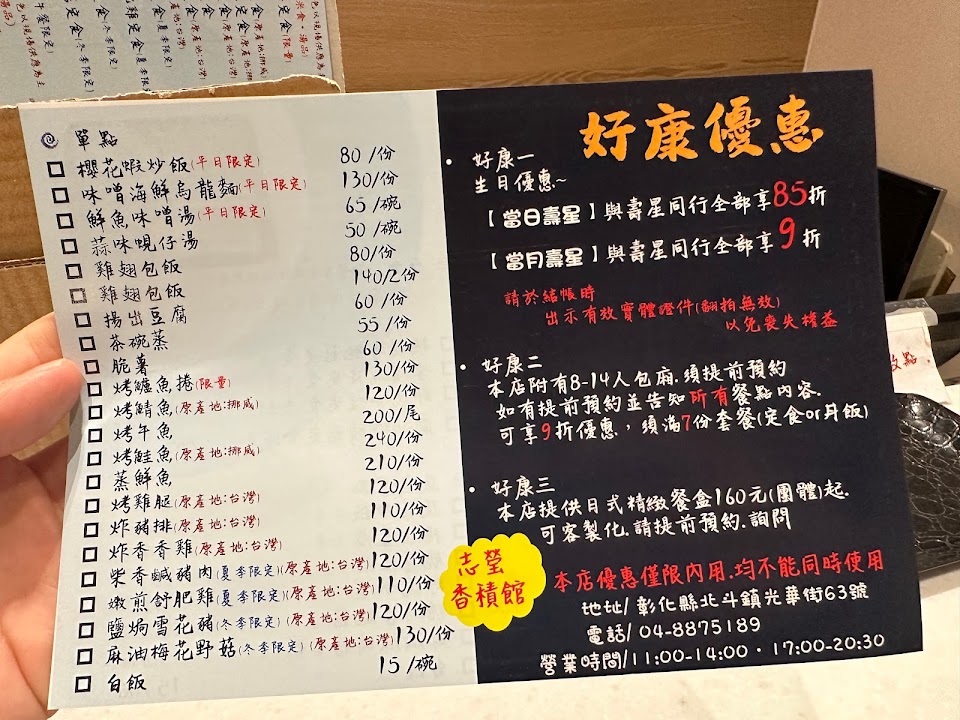 色以現場供應為主
米食+湯品)
定食(限量)
定食(原產地:挪威)
定食(原產地:台灣)
單點
櫻花蝦炒飯(平日限定) 80/份
味噌海鮮烏龍麵(平日限定) 130/份
鮮魚味噌湯(平日限定) 65/碗
蒜味蜆仔湯 50/碗
雞翅包飯 80/份
雞翅包飯 140/2份
揚出豆腐 60/份
茶碗蒸 55/份
脆薯 60/份
烤鱸魚捲(限量) 130/份
烤鯖魚(原產地:挪威) 120/份
烤午魚 200/尾
烤鮭魚(原產地:挪威) 240/份
蒸鮮魚 210/份
烤雞腿(原產地:台灣) 120/份
炸豬排(原產地:台灣) 110/份
炸香香雞(原產地:台灣) 120/份
柴香鹹豬肉(夏季限定)(原產地:台灣) 120/份
嫩煎舒肥雞(夏季限定)(原產地:台灣) 110/份
鹽焗雪花豬(冬季限定)(原產地:台灣) 120/份
麻油梅花野菇(冬季限定)(原產地:台灣) 130/份
白飯 15/碗
好康優惠
• 好康一
生日優惠~
【當日壽星】與壽星同行全部享85折
【當月壽星】與壽星同行全部享9折
請於結帳時
出示有效實體證件(翻拍無效)
以免喪失權益
• 好康二
本店附有8-14人包廂.須提前預約
如有提前預約並告知所有餐點內容.
可享9折優惠，須滿7份套餐(定食or丼飯)
• 好康三
本店提供日式精緻餐盒160元(團體)起.
可客製化.請提前預約.詢問
志瑩
香積館
本店優惠僅限內用.均不能同時使用
地址/彰化縣北斗鎮光華街63號
電話/04-8875189
營業時間/11:00-14:00・17:00-20:30